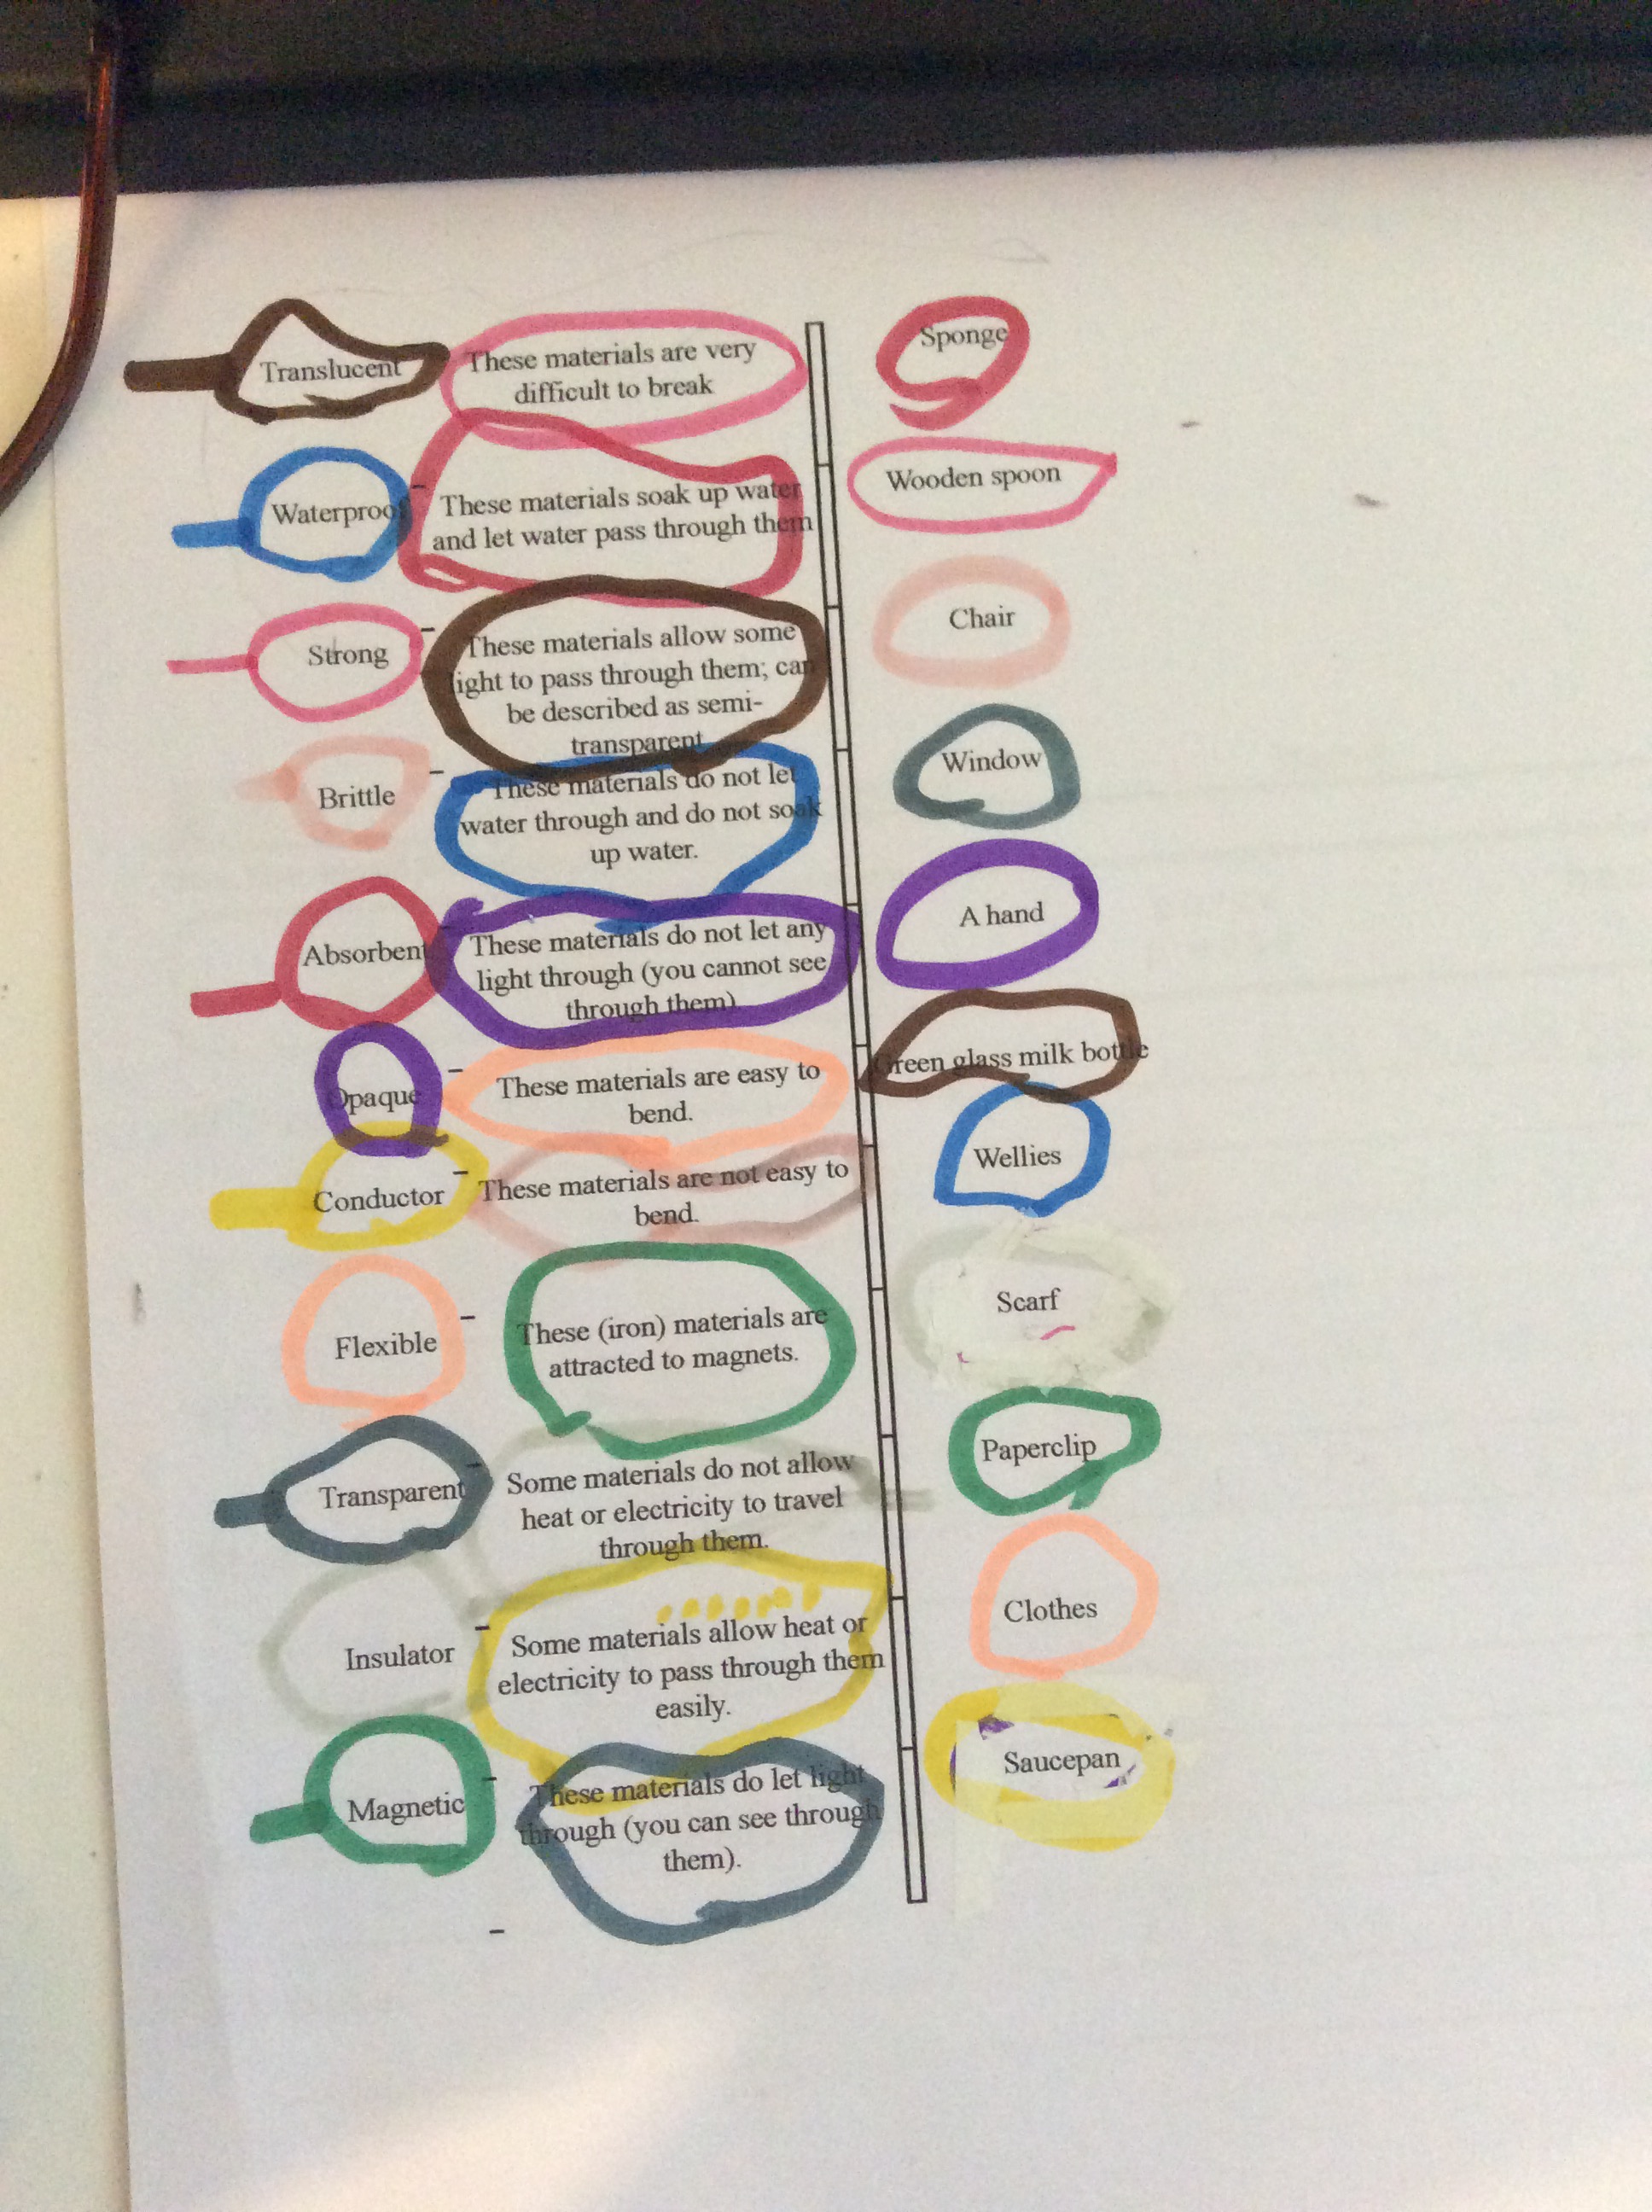 Translucent
These materials are very
difficult to break
Sponge
Waterproof
These materials soak up water
and let water pass through them
Wooden spoon
Strong
These materials allow some
light to pass through them; can
be described as semi-
transparent
Chair
Brittle
These materials do not let
water through and do not soak
up water.
Window
Absorbent
These materials do not let any
light through (you cannot see
through them)
A hand
Opaque
These materials are easy to
bend.
Green glass milk bottle
Conductor
These materials are not easy to
bend.
Wellies
Flexible
These (iron) materials are
attracted to magnets.
Scarf
Transparent
Some materials do not allow
heat or electricity to travel
through them.
Paperclip
Insulator
Some materials allow heat or
electricity to pass through them
easily.
Clothes
Magnetic
These materials do let light
through (you can see through
them).
Saucepan